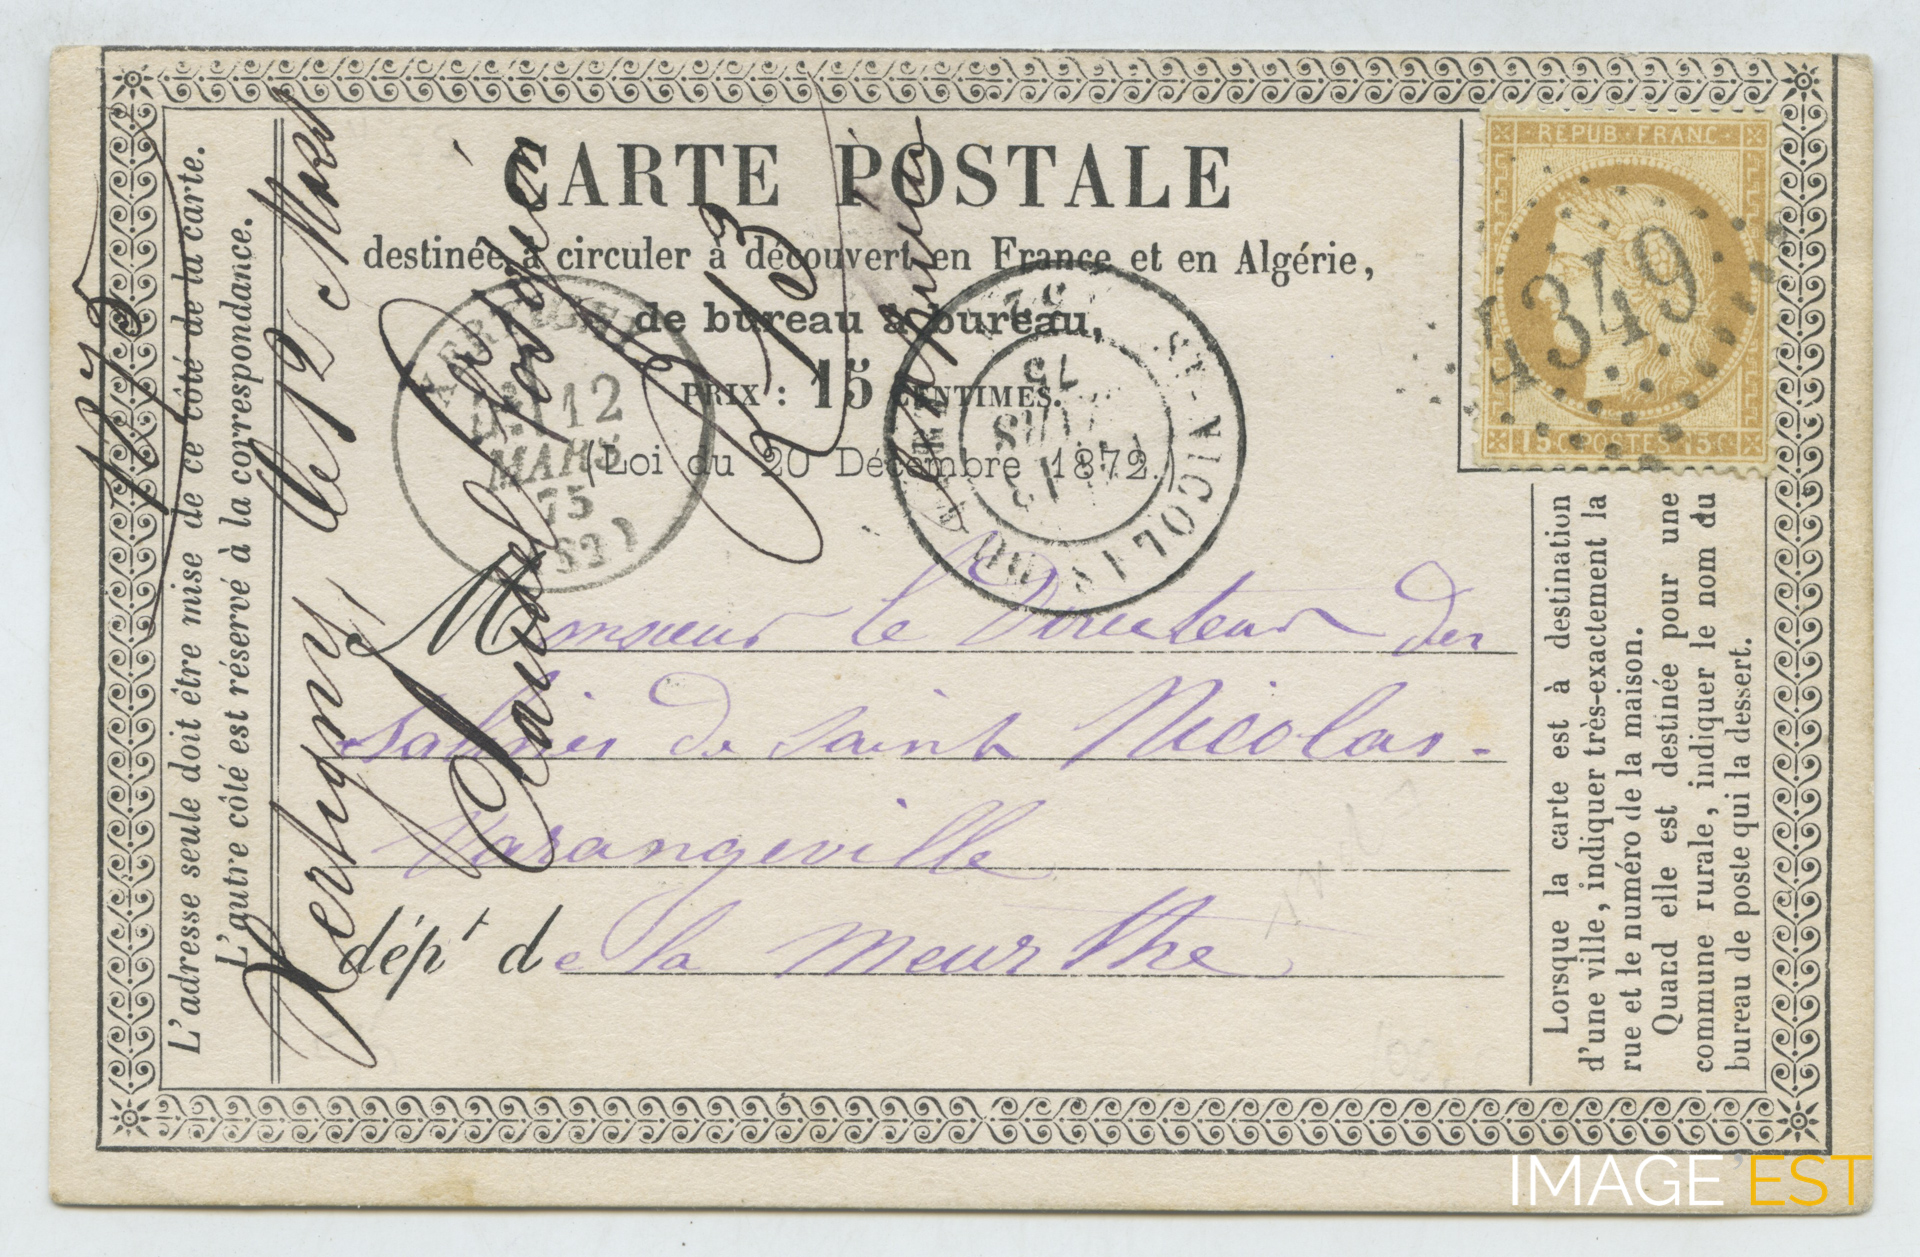 CARTE POSTALE
destinée à circuler à découvert en France et en Algérie,
de bureau à bureau,
PRIX : 15 CENTIMES.
(Loi du 20 Décembre 1872.)
REPUB FRANC
15 C POSTES 15 C
4349
XERTIGNY
12
MARS
75
ST-NICOLAS DU PORT
75
Monsieur le Directeur des
Salines de Saint Nicolas-
Varangeville
dépt de la Meurthe
L'adresse seule doit être mise de ce côté de la carte.
L'autre côté est réservé à la correspondance.
Xertigny le 12 Mars
1875
Lorsque la carte est à destination
d'une ville, indiquer très-exactement la
rue et le numéro de la maison.
Quand elle est destinée pour une
commune rurale, indiquer le nom du
bureau de poste qui la dessert.
IMAGE EST